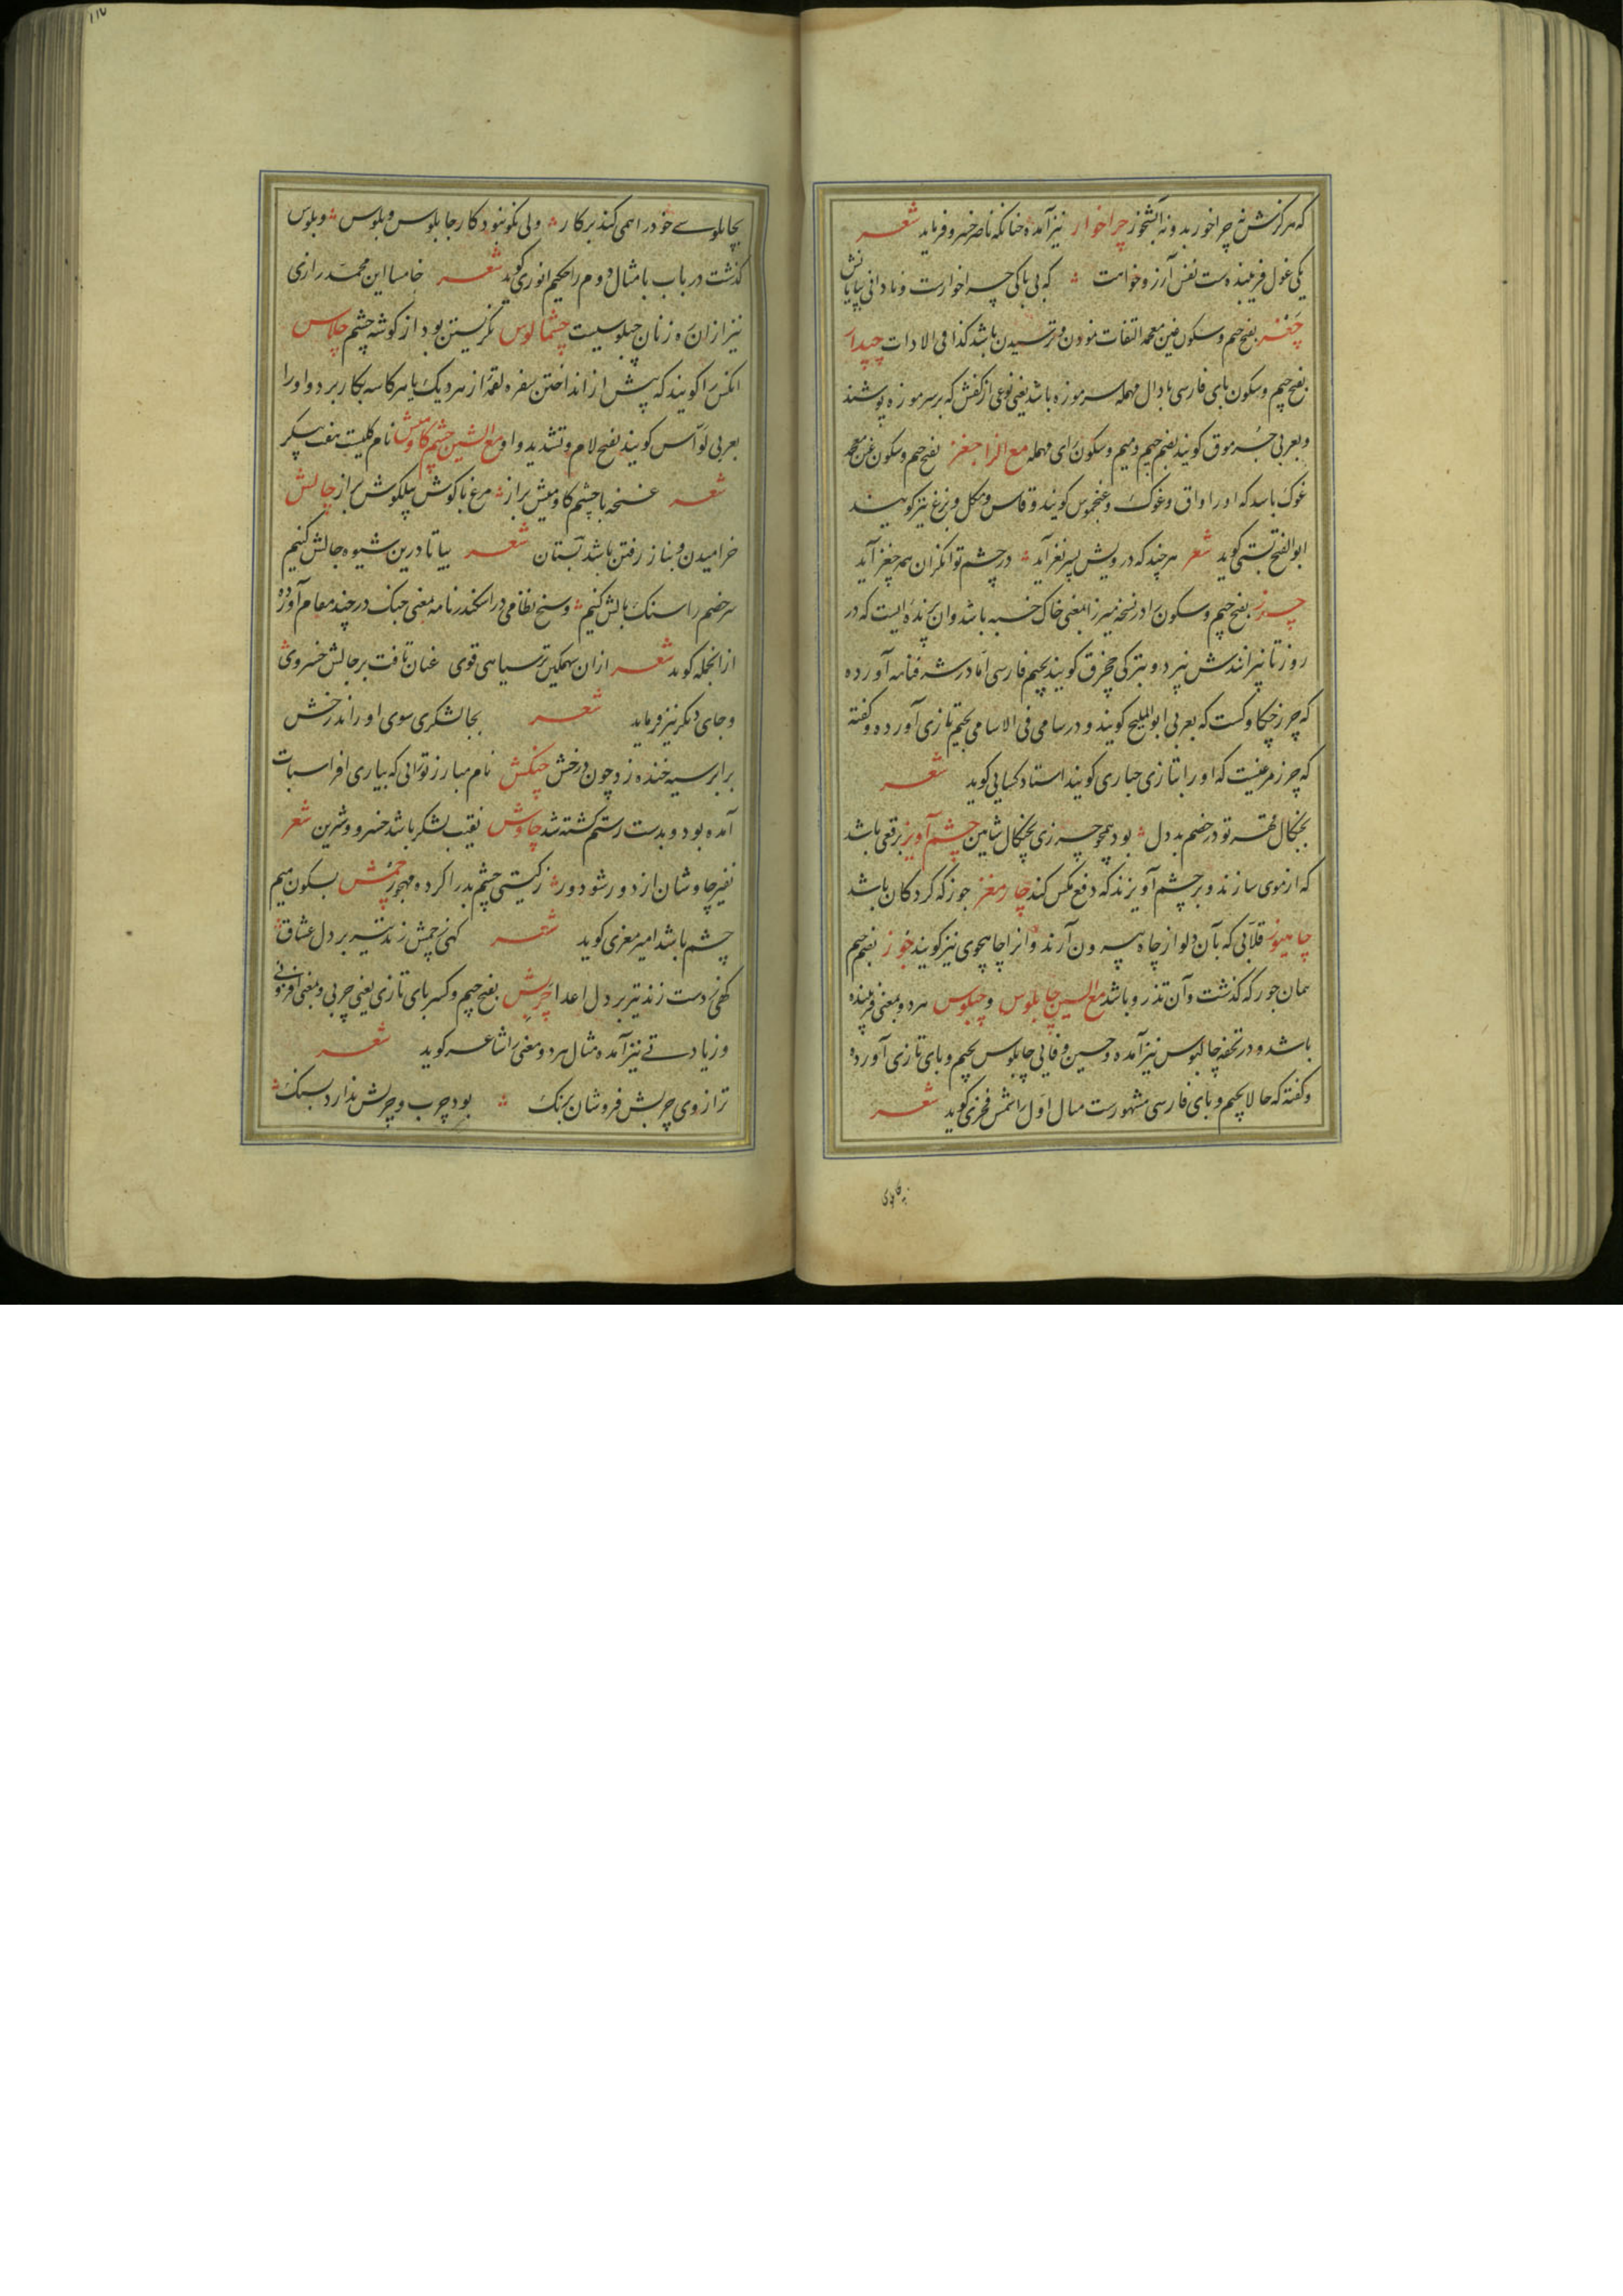 که هرگزش نه چراخور بد و نه آبشخور چراخوار نیز آمده چنانکه ناصر خسرو فرماید شعر
یکی غول فریبنده ست نفس آرزو خواهت که بی باکی چراخوارست و نادانی بیابانش
چغز بفتح جیم وسکون غین معجمه التفات نمودن و ترسیدن باشد کذا فی الادات چپدار
بفتح جیم وسکون بای فارسی با دال مهمله سرموزه باشد یعنی نوعی از کفش که بر سر موزه پوشند
و بعربی جرموق کویند بضم جیم ومیم وسکون رای مهمله مع الزا چغز بفتح جیم وسکون غین معجمه
غوک باشد که او را واق و غوک و غنجموس کویند و قاس و مکل و بزغ نیز کویند
ابوالفتح بستی کوید شعر هر چند که درویش پسر نغز آید در چشم توانکران همه چغز آید
چرز بفتح جیم وسکون را در نسخه میرزا بمعنی خاک خسبه باشد وان پرنده ایست که در
روز تا نپرانندش نپرد و بترکی چخرق کویند بجیم فارسی اما در شرفنامه آورده
که چرز چکاوکست که بعربی ابو الملیح کویند و در سامی فی الاسامی بجیم تازی آورده و کفته
که چرز مرغیست که او را بتازی حباری کویند استاد کسایی کوید شعر
بچنکال قهر تو در خصم بد دل بود همچو چرزی بچنکال شاهین چشم آویز برقعی باشد
که از موی سازند و بر چشم آویزند که دفع مکس کند چارمغز جوز که کردکان باشد
چاهیوز قلابی که بآن دلو از چاه بیرون آرند وانرا چاهجوی نیز کویند چوز بضم جیم
همان جور که کذشت وآن تذرو باشد مع السین چاپلوس و چپلوس هر دو بمعنی فریبنده
باشد و در تحفه چالپوس نیز آمده و حسین وفایی چابلوس بجیم وبای تازی آورده
وکفته که حالا بجیم وبای فارسی مشهورست مثال اول را شمس فخری کوید شعر
بچاپلوسی
بچاپلوسے خود را همی کند بر کار ولی نکو نبود کار چابلوس و بلوس وبلوس
کذشت در باب با مثال دوم را حکیم انوری کوید شعر خامسا این محمد رازی
نیز از ان ه زنان چپلوسیست چشمالوس نکریستن بود از کوشه چشم چلاس
انکس را کویند که پیش از انداختن سفره لقمه از هر دیک یا هر کاسه بکار برد و او را
بعربی لواس کویند بفتح لام وتشدید واو مع الشین چشم کاومیش نام کلیست بنفت پیکر
شعر غنچه با چشم کاومیش براز مرغ با کوش پیلکوش براز چالش
خرامیدن و بناز رفتن باشد بستان شعر بیا تا درین شیوه چالش کنیم
سر خصم را سنک بالش کنیم و شیخ نظامی در اسکندرنامه بمعنی جنک در چند مقام آورده
ازانجمله کوید شعر ازان سهمکین تر سیاهی قوی عنان تافت بر چالش خسروی
وجای دیکر نیز فرماید شعر بچالشکری سوی او راند رخش
برابر سیه خنده زد چون درخش چنکش نام مبارز تورانی که بیاری افراسیاب
آمده بود و بدست رستم کشته شد چاوش نقیب لشکر باشد خسرو وشیرین شعر
نفیر چاوشان از دور شو دور ز کیتی چشم بد را کرده مهجور چمش بسکون میم
چشم باشد امیر معزی کوید شعر کهی چمش زند تیر بر دل عشاق
کهی دست زند تیر بر دل اعدا چربش بفتح جیم وکسر بای تازی یعنی چربی وبمعنی افزونی
وزیادتے نیز آمده مثال هر دو معنی را شاعر کوید شعر
ترازوی چربش فروشان برنک بود چرب و چربش ندارد بسنک